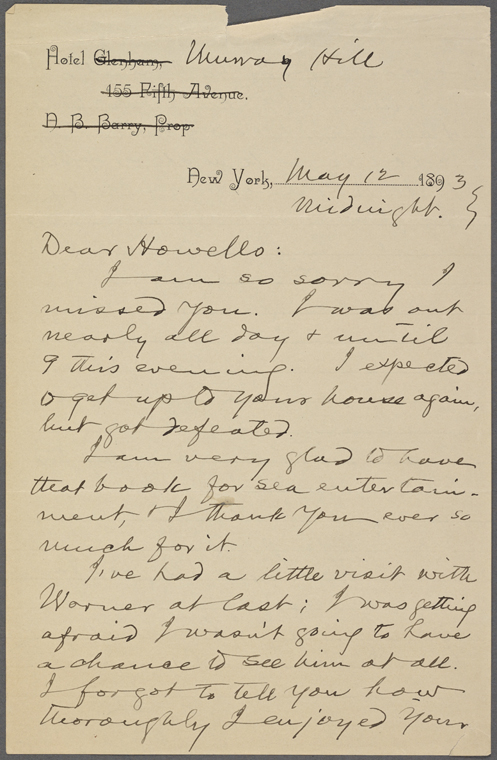 Hotel Glenham, Murray Hill
155 Fifth Avenue.
A. B. Barry, Prop
New York, May 12 1893
Midnight.
Dear Howells:
I am so sorry I
missed you. I was out
nearly all day & until
9 this evening. I expected
to get up to your house again,
but got defeated.
I am very glad to have
that book for sea entertain-
ment, & I thank you ever so
much for it.
I've had a little visit with
Warner at last; I was getting
afraid I wasn't going to have
a chance to see him at all.
I forgot to tell you how
thoroughly I enjoyed your